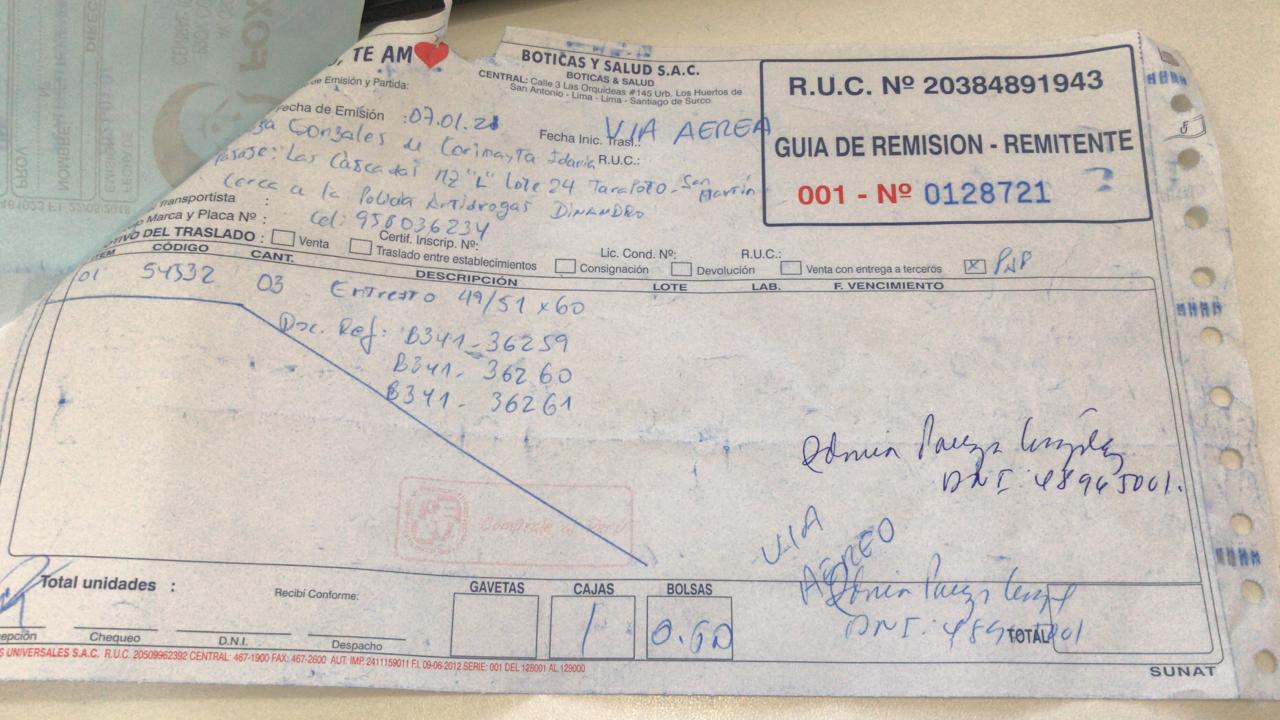 , TE AM
BOTICAS Y SALUD S.A.C.
BOTICAS & SALUD
CENTRAL: Calle 3 Las Orquideas #145 Urb. Los Huertos de
San Antonio - Lima - Lima - Santiago de Surco.
R.U.C. Nº 20384891943
GUIA DE REMISION - REMITENTE
001 - Nº 0128721
de Emisión y Partida:
Fecha de Emisión : 07.01.21
Fecha Inic. Trasl.: VIA AEREA
Gonzales de Corimayta Idania R.U.C.:
Pasaje: Las Cascadas MZ "L" Lote 24 Tarapoto - San Martin
Cerca a la Policia Antidrogas DINANDRO
Transportista : Cel: 958036234
Marca y Placa Nº :
Certif. Inscrip. Nº:
Lic. Cond. Nº:
R.U.C.:
TIVO DEL TRASLADO : Venta Traslado entre establecimientos Consignación Devolución Venta con entrega a terceros x PNP
ITEM CÓDIGO CANT. DESCRIPCIÓN LOTE LAB. F. VENCIMIENTO
01 54332 03 Entresto 49/51 x 60
Doc. Ref: B341-36259
B341- 36260
B341- 36261
DNI 48965001.
VIA
AEREO
DNI.
Total unidades :
Recibí Conforme:
GAVETAS CAJAS BOLSAS
1 0.60
epción Chequeo D.N.I. Despacho
TOTAL
S UNIVERSALES S.A.C. R.U.C. 20509962392 CENTRAL: 467-1900 FAX: 467-2600 AUT. IMP. 2411159011 F.I. 09-06-2012 SERIE: 001 DEL 126001 AL 129000
SUNAT